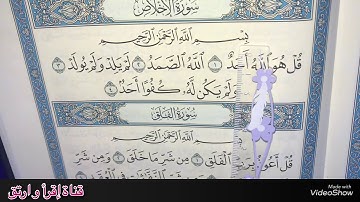 سُورَةُ الإِخْلَاصِ
بِسْمِ اللَّهِ الرَّحْمَٰنِ الرَّحِيمِ
قُلْ هُوَ اللَّهُ أَحَدٌ ۝١ اللَّهُ الصَّمَدُ ۝٢ لَمْ يَلِدْ وَلَمْ يُولَدْ ۝٣
وَلَمْ يَكُن لَّهُ كُفُوًا أَحَدٌ ۝٤
سُورَةُ الفَلَقِ
بِسْمِ اللَّهِ الرَّحْمَٰنِ الرَّحِيمِ
قُلْ أَعُوذُ بِرَبِّ الْفَلَقِ ۝١ مِن شَرِّ مَا خَلَقَ ۝٢ وَمِن شَرِّ
قناة إقرأ و ارتق
Made with
VideoShow